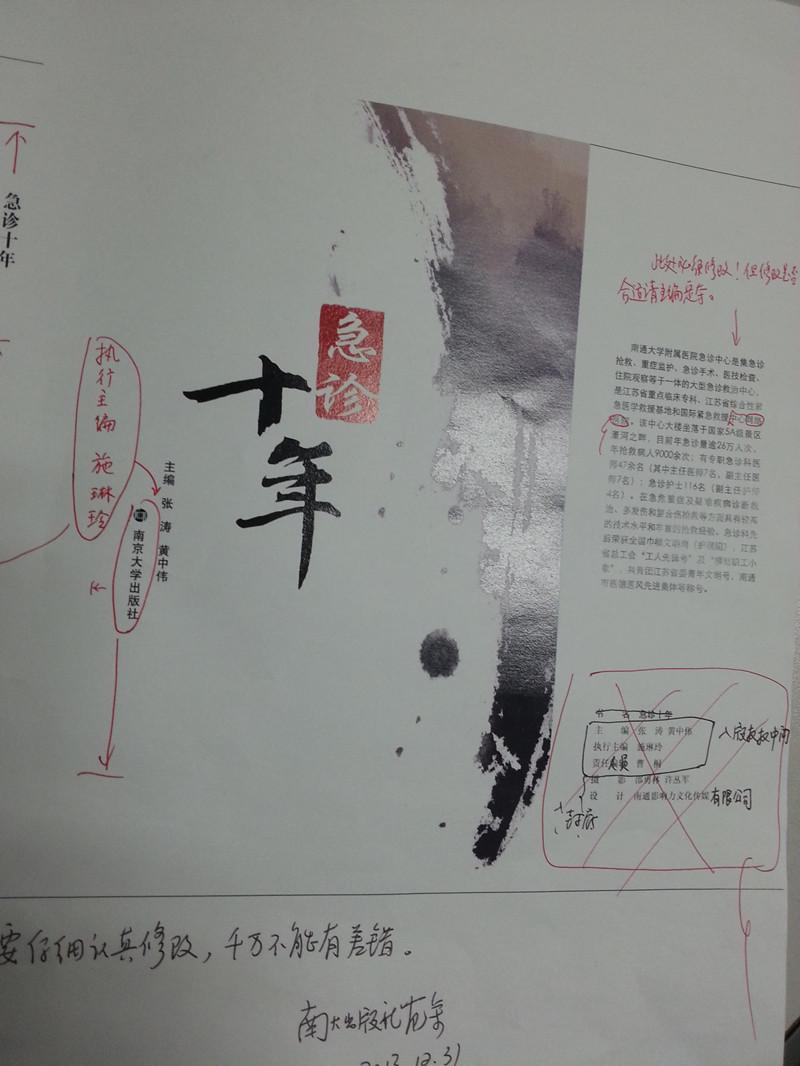 急诊十年
执行主编 施琳玲
主编 张 涛 黄中伟
南京大学出版社
急诊
十年
此处必须修改！但修改是否
合适请主编定夺。
南通大学附属医院急诊中心是集急诊
抢救、重症监护、急诊手术、医技检查、
住院观察等于一体的大型急诊救治中心，
是江苏省重点临床专科、江苏省综合性紧
急医学救援基地和国际紧急救援中心网络
医院。该中心大楼坐落于国家5A级景区
濠河之畔，目前年急诊量逾26万人次，
年抢救病人9000余次；有专职急诊科医
师47余名（其中主任医师7名，副主任医
师7名）；急诊护士116名（副主任护师
4名）。在急危重症及疑难疾病诊断救
治、多发伤和复合伤抢救等方面具有较高
的技术水平和丰富的抢救经验。急诊科先
后荣获全国巾帼文明岗（护理组），江苏
省总工会“工人先锋号”及“模范职工小
家”，共青团江苏省委青年文明号，南通
市医德医风先进集体等称号。
书 名 急诊十年
主 编 张 涛 黄中伟
执行主编 施琳玲
责任 曹 桐
摄 影 邵勇林 许丛军
设 计 南通影响力文化传媒有限公司
要仔细认真修改，千万不能有差错。
南大出版社
2013.12.31